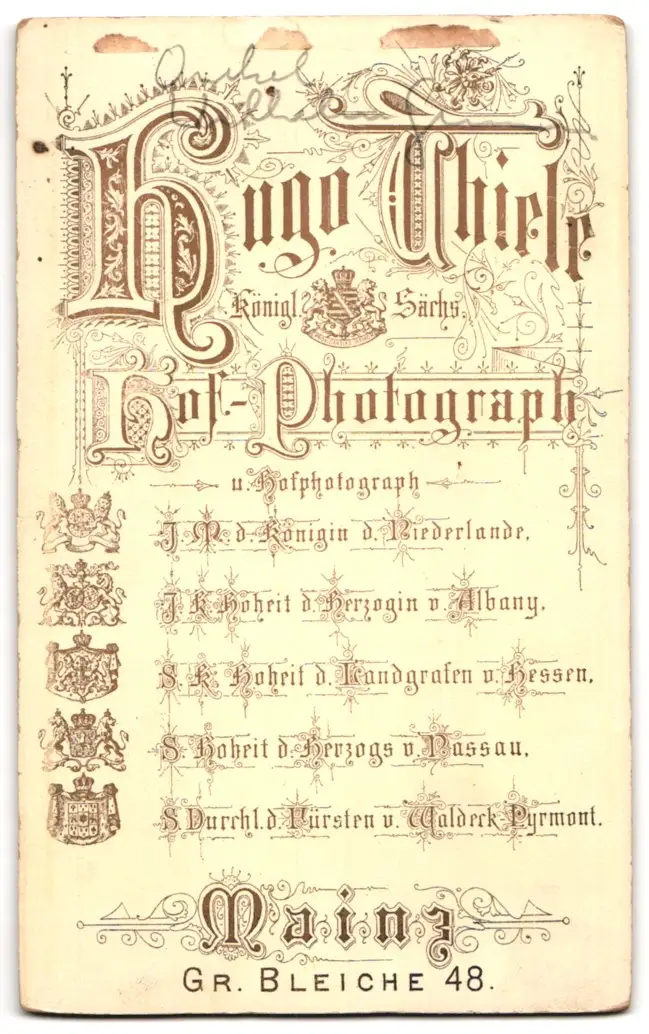 Onkel
Wilhelm
Hugo Thiele
Königl. Sächs.
Hof-Photograph
u. Hofphotograph
J. M. d. Königin d. Niederlande.
J. K. Hoheit d. Herzogin v. Albany.
S. K. Hoheit d. Landgrafen v. Hessen.
S. Hoheit d. Herzogs v. Nassau.
S. Durchl. d. Fürsten v. Waldeck-Pyrmont.
Mainz
GR. BLEICHE 48.